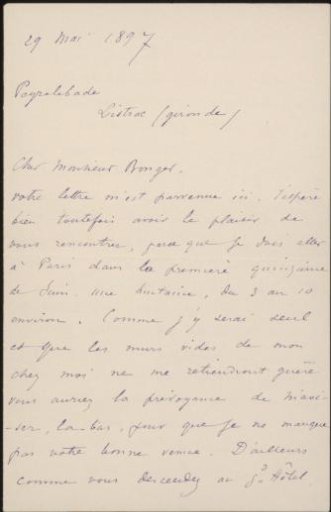 29 Mai 1897
Peyrelebade
Listrac (gironde)
Cher Monsieur Bonger.
votre lettre m'est parvenue ici. J'espère
bien toutefois avoir le plaisir de
vous rencontrer, parce que je dois aller
à Paris dans la première quinzaine
de Juin. une huitaine, du 3 au 10
environ. Comme j'y serai seul
et que les murs vides de mon
chez moi ne me retiendront guère
vous auriez la prévoyance de m'avi-
-ser, là-bas, pour que je ne manque
pas votre bonne venue. D'ailleurs
comme vous descendez au gd Hôtel